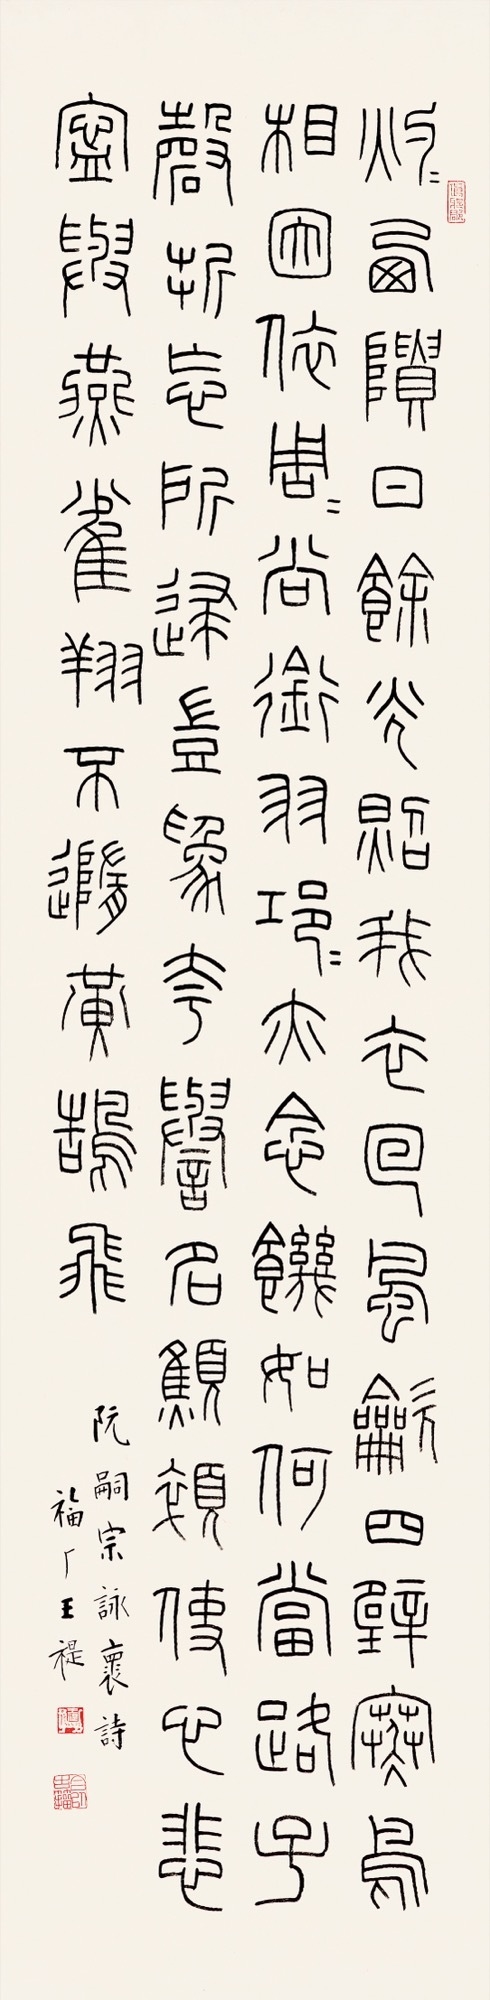 灼〻西隤日餘光照我衣回風龡四壁寒鳥
相因依周〻尚銜羽邛〻亦念饑如何當路子
磬折忘所歸豈為夸譽名顦顇使心悲
寧與燕雀翔不隨黃鵠飛
阮嗣宗詠褱詩
福厂王禔